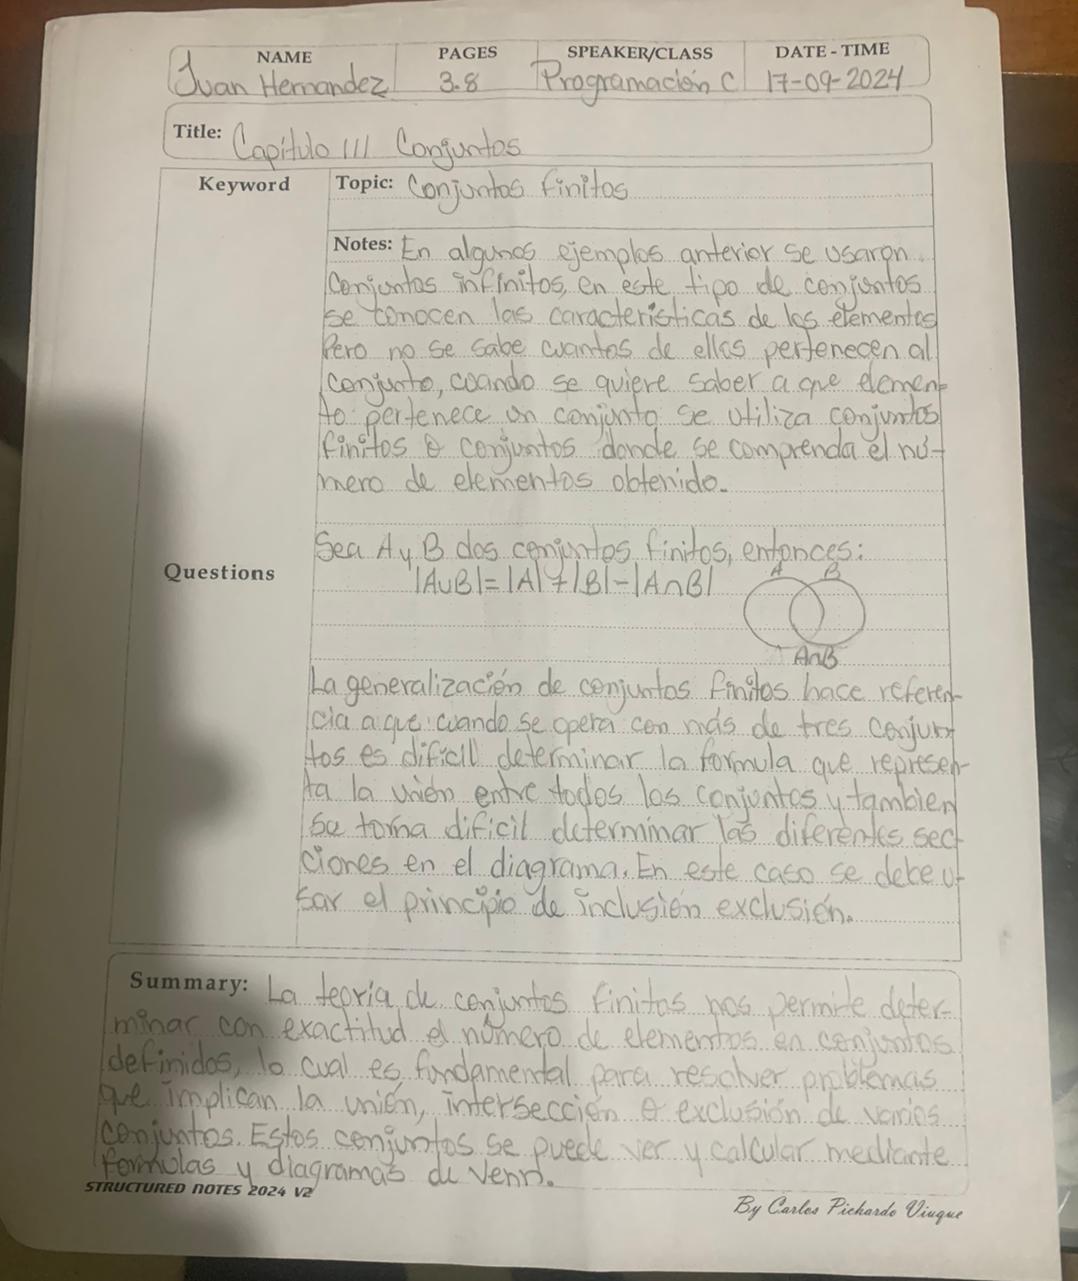 NAME PAGES SPEAKER/CLASS DATE - TIME
Juan Hernandez 3.8 Programación C 17-09-2024
Title: Capítulo III Conjuntos
Keyword
Topic: Conjuntos finitos
Notes: En algunos ejemplos anterior se usaron
Conjuntos infinitos, en este tipo de conjuntos
se conocen las características de los elementos
Pero no se sabe cuantos de ellos pertenecen al
conjunto, cuando se quiere saber a que elemen-
to pertenece un conjunto se utiliza conjuntos
finitos o conjuntos donde se comprenda el nú-
mero de elementos obtenido.
Sea A y B dos conjuntos finitos, entonces:
Questions
|A∪B|=|A|+|B|-|A∩B|
A B
A∩B
La generalización de conjuntos finitos hace referen-
cia a que cuando se opera con más de tres conjun-
tos es dificil determinar la formula que represen-
ta la unión entre todos los conjuntos y tambien
se torna dificil determinar las diferentes sec-
ciones en el diagrama. En este caso se debe u-
sar el principio de inclusión exclusión.
Summary: La teoría de conjuntos finitos nos permite deter-
minar con exactitud el número de elementos en conjuntos
definidos, lo cual es fundamental para resolver problemas
que implican la unión, intersección o exclusión de varios
conjuntos. Estos conjuntos se puede ver y calcular mediante
formulas y diagramas de Venn.
STRUCTURED NOTES 2024 V2
By Carlos Pichardo Viuque